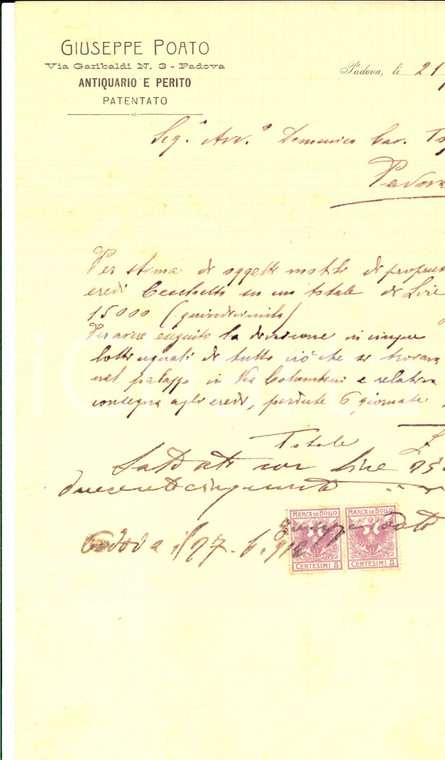 GIUSEPPE POATO
Via Garibaldi N. 3 - Padova
ANTIQUARIO E PERITO
PATENTATO
Padova, li 21
Sig. Avv.º Domenico Cav. To
Padova
Per stima di oggetti mobili di propr
eredi in un totale di Lire
15000 (quindicimila)
Per avere eseguito la divisione in cinque
lotti uguali di tutto ciò che si trovava
nel palazzo in Via e relativa
consegna agli eredi, perdute 6 giornate
Totale L
Saldati con Lire 25
duecentocinquanta
Padova il 27. 6. 912
MARCA DA BOLLO MARCA DA BOLLO
CENTESIMI 5 CENTESIMI 5